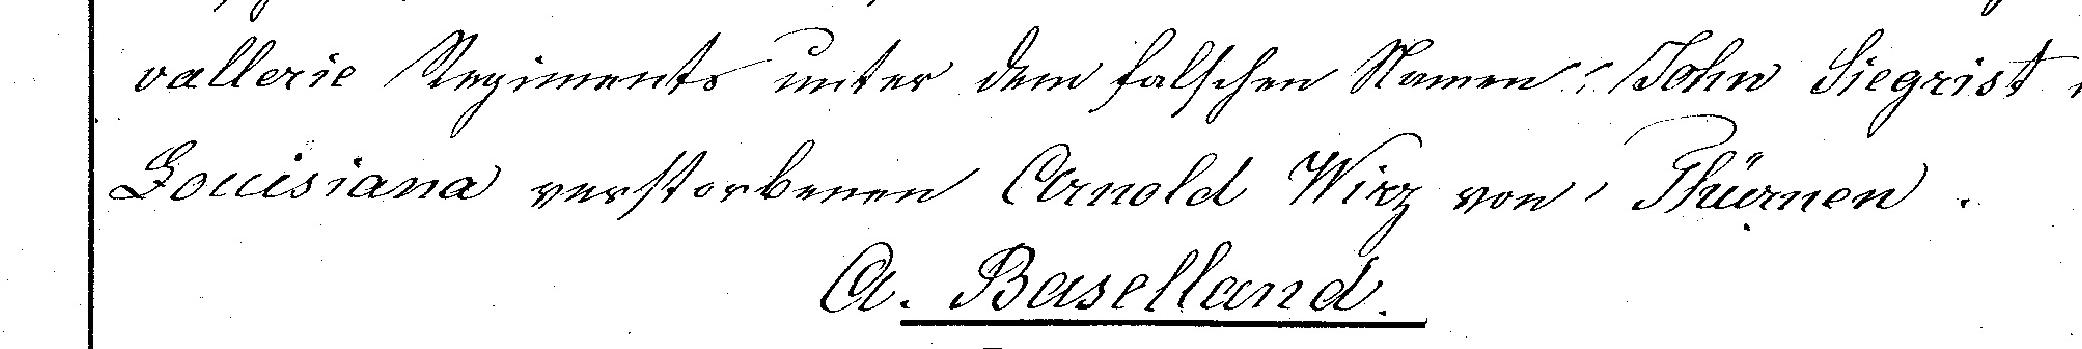 vallerie Regiments unter dem falschen Namen: John Siegrist
Louisiana verstorbenen Arnold Wirz von Thürnen.
Ct. Baselland.